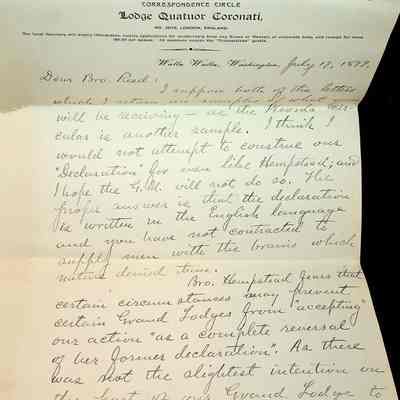 CORRESPONDENCE CIRCLE
Lodge Quatuor Coronati,
NO. 2076, LONDON, ENGLAND.
Walla Walla, Washington, July 17, 1899.
Dear Bro. Reed:
I suppose both of the letters
which I return are samples of what you
will be receiving — as the Kansas
cular is another sample. I think I
would not attempt to construe our
"Declaration" for even like Hempstead; and
I hope the G.M. will not do so. The
proper answer is that the declaration
is written in the English language
and you have not contracted to
supply men with the brains which
nature denied them.
Bro. Hempstead fears that
certain circumstances may prevent
certain Grand Lodges from "accepting"
our action "as a complete reversal
of her former declaration". As there
was not the slightest intention on
the part of our Grand Lodge to